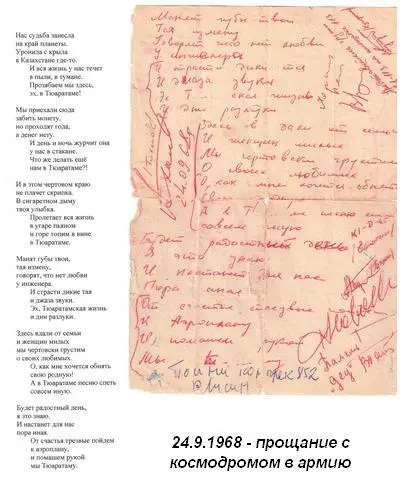 Нас судьба занесла
на край планеты.
Уронила с крыла
в Казахстане где-то.
И вся жизнь у нас течет
в пыли, в тумане.
Прозябаем мы здесь,
эх, в Тюратаме!
Мы приехали сюда
забить монету,
но проходят года,
а денег нету.
И день и ночь журчит она
у нас в стакане.
Что же делать ещё
нам в Тюратаме?!
И в этом чертовом краю
не плачет скрипка.
В сигаретном дыму
твоя улыбка.
Пролетает вся жизнь
в угаре пьяном
и горе топим в вине
в Тюратаме.
Манят губы твои,
тая измену,
говорят, что нет любви
у инженера.
И страсти дикие тая
и джаза звуки.
Эх, Тюратамская жизнь
и дни разлуки.
Здесь вдали от семьи
и женщин милых
мы чертовски грустим
о своих любимых.
О, как мне хочется обнять
свою родную!
А в Тюратаме песню спеть
совсем иную.
Будет радостный день,
я это знаю.
И настанет для нас
пора иная.
От счастья трезвые пойдем
к аэроплану,
и помашем рукой
мы Тюратаму.
Манят губы твои
Тая измену
Говорят что нет любви
У инженера
И страсти дикие тая
И джаза звуки
Эх Т - ская жизнь
И дни разлуки
Здесь в дали от семьи
И женщин милых
Мы чертовски грустим
О своих любимых
О, как мне хочется обнять
А в Т
совсем иную
Будет радостный день
Я это знаю
И настанет для нас
Пора иная
От счастья трезвые
К Аэроплану
И помашем рукой
Мы Т
24.9.1968 - прощание с
космодромом в армию